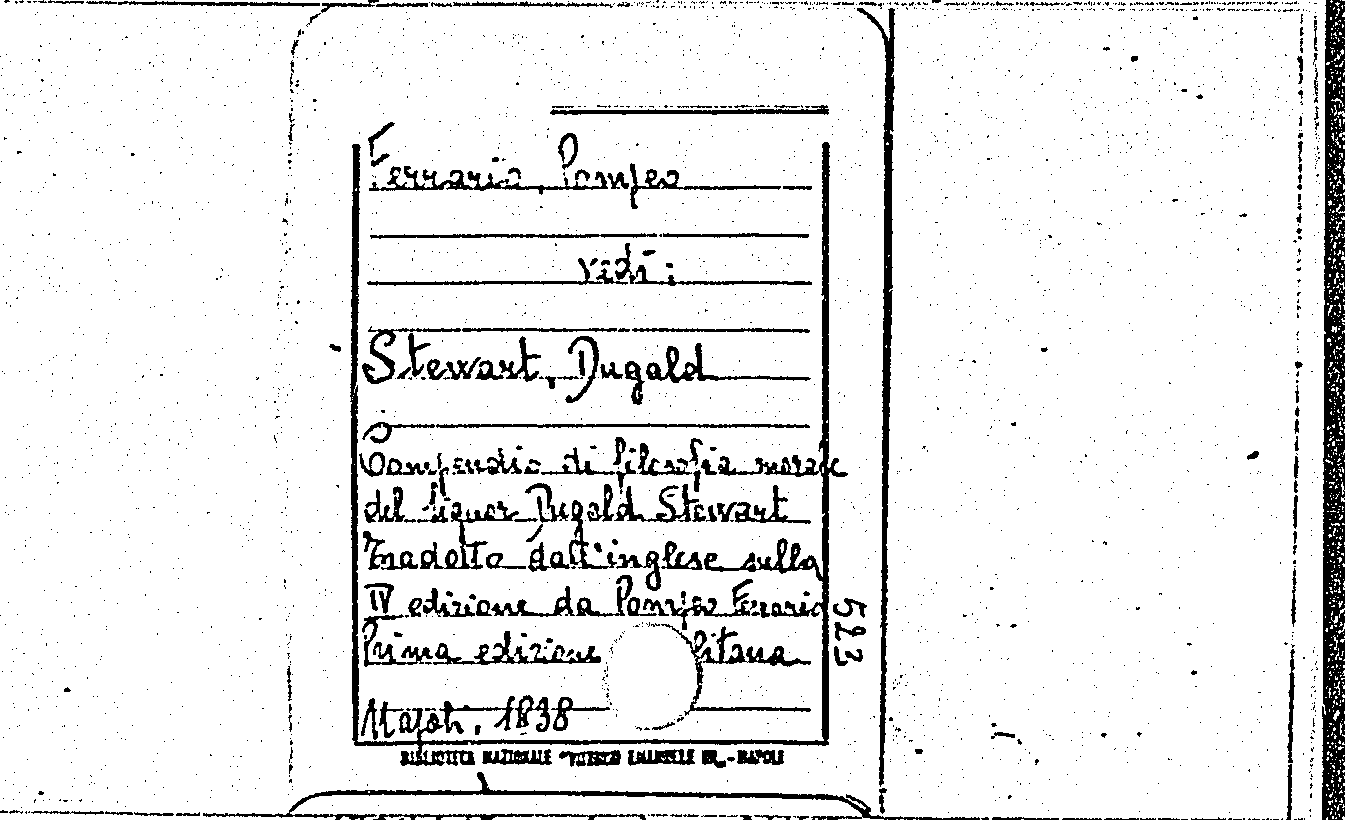 Ferrario, Pompeo
vedi:
Stewart, Dugald
Compendio di filosofia morale
del signor Dugald Stewart
Tradotto dall'inglese sulla
IV edizione da Pompeo Ferrario
Prima edizione litana
Napoli, 1838
523
BIBLIOTECA NAZIONALE "VITTORIO EMANUELE III" - NAPOLI